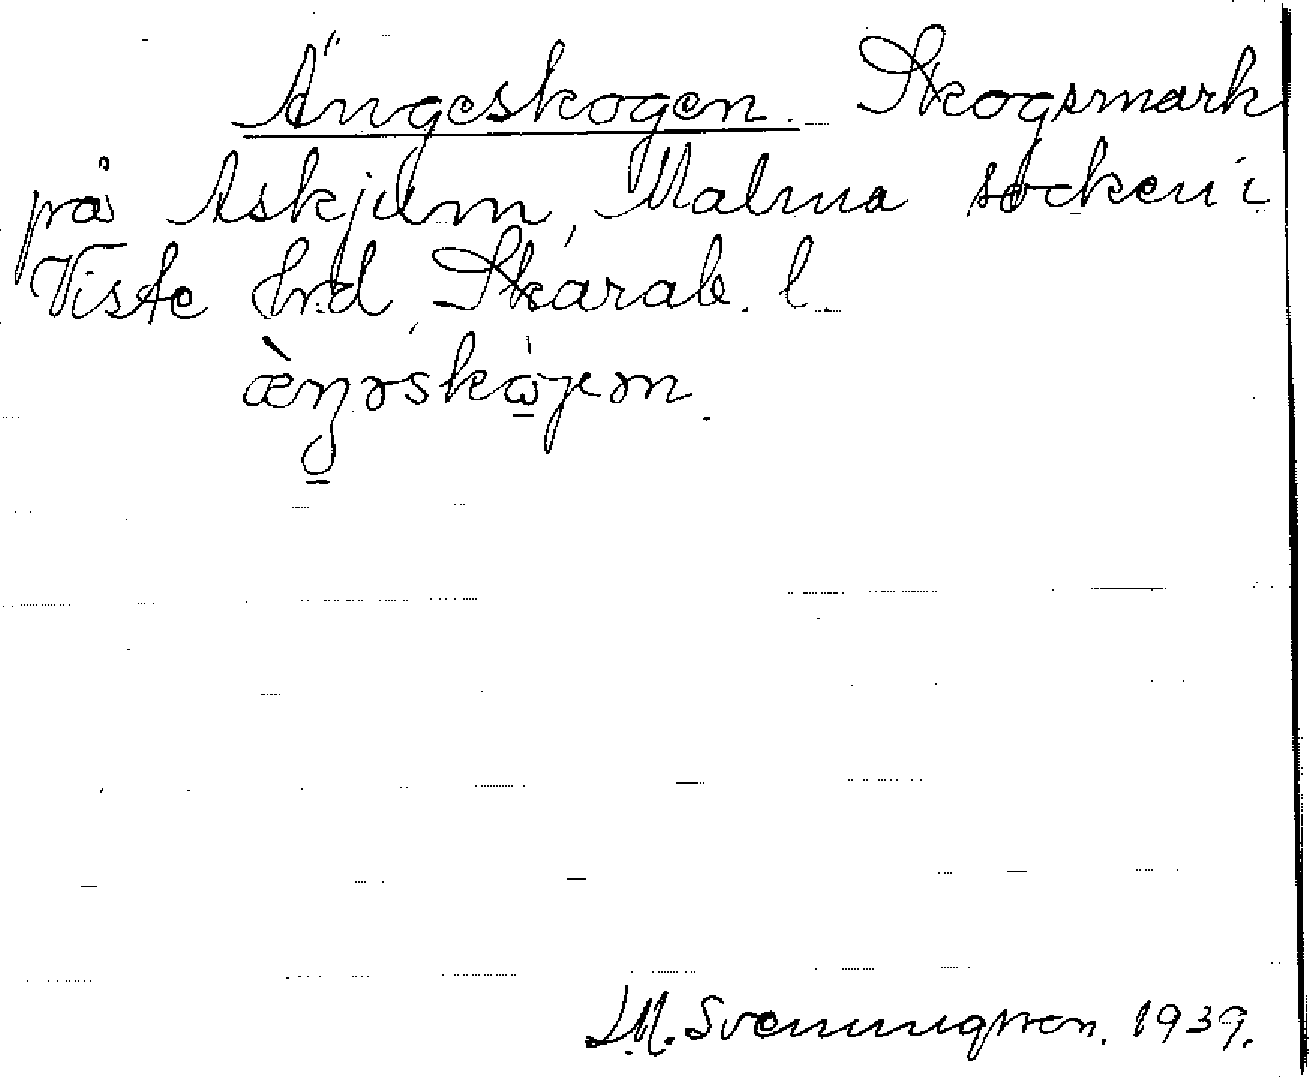 Ängeskogen. Skogsmark
på Askjum, Malma socken i
Viste hrd, Skarab. l.
æ̀ŋəskòγen.
J.M. Svenungsson. 1939.